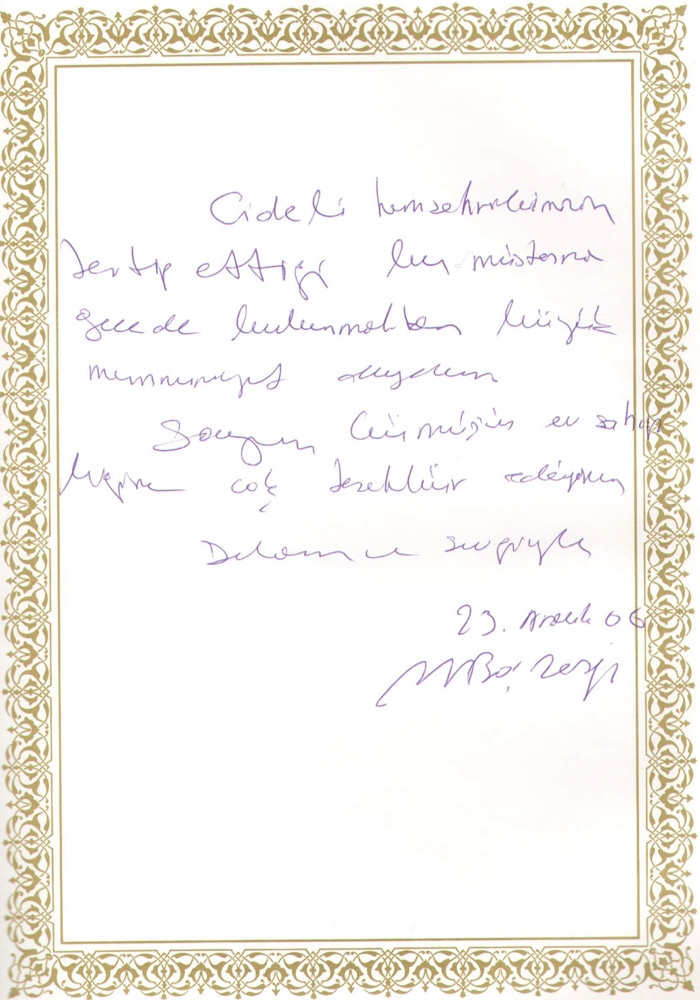 Cideli hemşehrilerimizin
tertip ettiği bu müstesna
gecede bulunmaktan büyük
memnuniyet duydum
ev sahip
çok teşekkür ediyorum
Selam ve saygıyla
23. Aralık 06